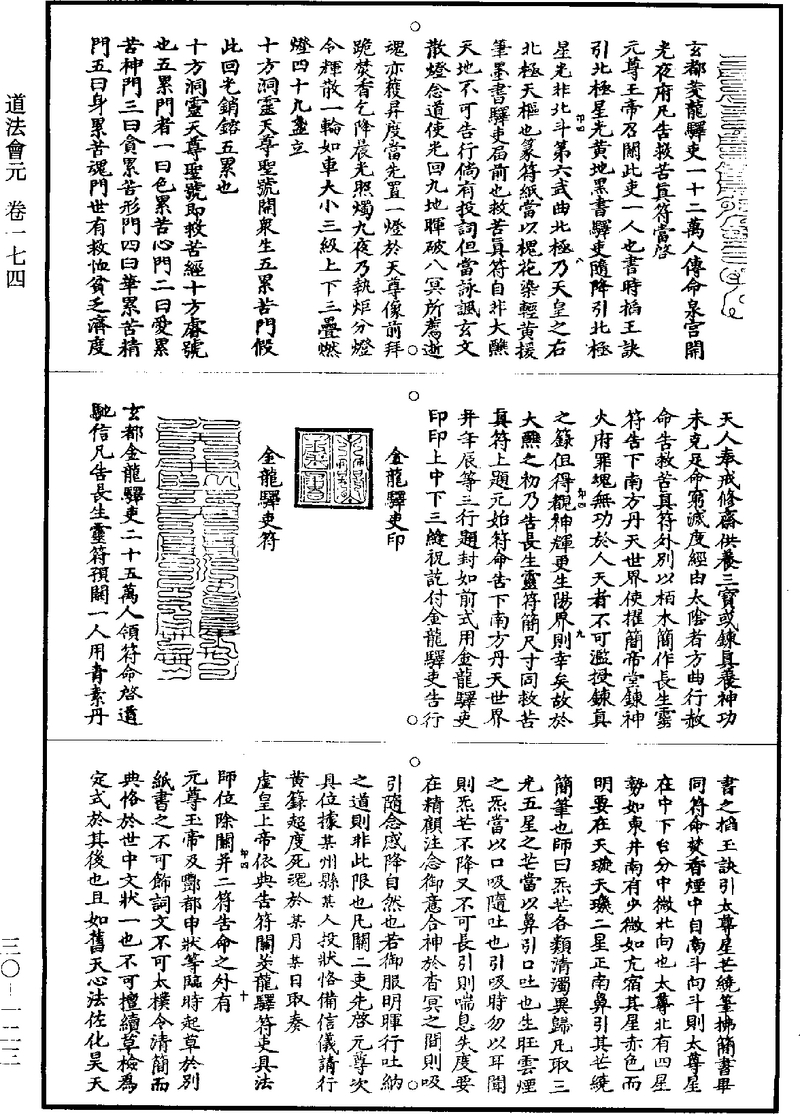 道法會元　卷一七四
三〇－一二三
玄都茭龍驛吏一十二萬人傳命泉宮開
光夜府凡告救苦真符當啓
元尊玉帝乃關此吏一人也書時掐玉訣
引北極星光黃地黑書驛吏隨降引北極
星光非北斗第六武曲北極乃天皇之右
北極天樞也篆符紙當以槐花染輕黃援
筆墨書驛吏居前也救苦真符自非大醮
天地不可告行倘有投詞但當詠諷玄文
散燈念道使光回九地暉破八冥所薦逝
魂亦獲昇度當先置一燈於天尊像前拜
跪焚香乞降晨光照燭九夜乃執炬分燈
令輝散一輪如車大小三級上下三疊燃
燈四十九盞立
十方洞靈天尊聖號開衆生五累苦門假
此回光銷鎔五累也
十方洞靈天尊聖號即救苦經十方尊號
也五累門者一曰色累苦心門二曰愛累
苦神門三曰貪累苦形門四曰華累苦精
門五曰身累苦魂門世有救恤貧乏濟度
天人奉戒修齋供養三寶或鍊真養神功
未克足命窮滅度經由太陰者方曲行赦
命告救苦真符外別以栢木簡作長生靈
符告下南方丹天世界使擢簡帝堂鍊神
火府罪塊無功於人天者不可濫授鍊真
之籙但得覩神輝更生陽界則幸矣故於
大醮之初乃告長生靈符簡尺寸同救苦
真符上題元始符命告下南方丹天世界
并年辰等三行題封如前式用金龍驛吏
印印上中下三縫祝訖付金龍驛吏告行
金龍驛吏印
金龍驛吏符
玄都金龍驛吏二十五萬人領符命啓道
馳信凡告長生靈符預關一人用青素丹
書之掐玉訣引太尊星芒繞筆拂簡書畢
同符命焚香煙中自南斗向斗則太尊星
在中下台分中微北向也太尊北有四星
勢如東井南有少微如亢宿其星赤色而
明要在天璇天璣二星正南鼻引其芒繞
簡筆也師曰炁芒各類清濁異歸凡取三
光五星之芒當以鼻引口吐也生旺雲煙
之炁當以口吸隨吐也引吸時勿以耳聞
則炁芒不降又不可長引則喘息失度要
在精顧注念御意合神於杳冥之間則吸
引隨念感降自然也若御服明暉行吐納
之道則非此限也凡關二吏先啓元尊次
具位據某州縣某人投狀恪備信儀請行
黃籙超度死魂於某月某日取奏
虛皇上帝依典告符關茭龍驛符吏具法
師位除關并二符告命之外有
元尊玉帝及酆都申狀等臨時起草於別
紙書之不可飾詞文不可太樸令清簡而
典恪於世中文狀一也不可擅續草檢爲
定式於其後也且如舊天心法佐化昊天